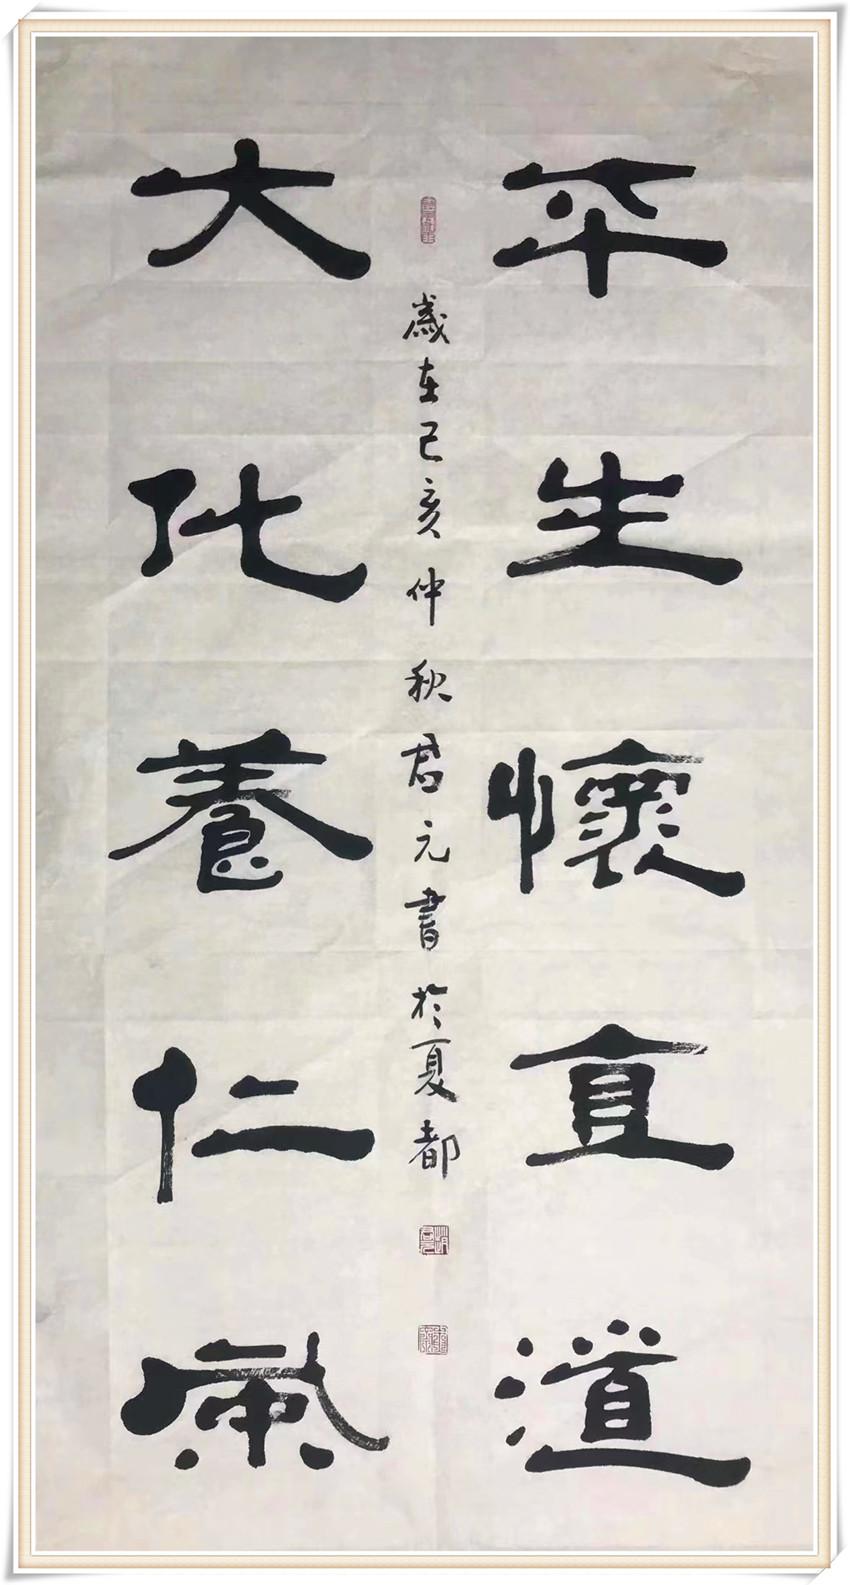 平生懷直道
大化養仁風
歲在己亥仲秋君元書於夏都